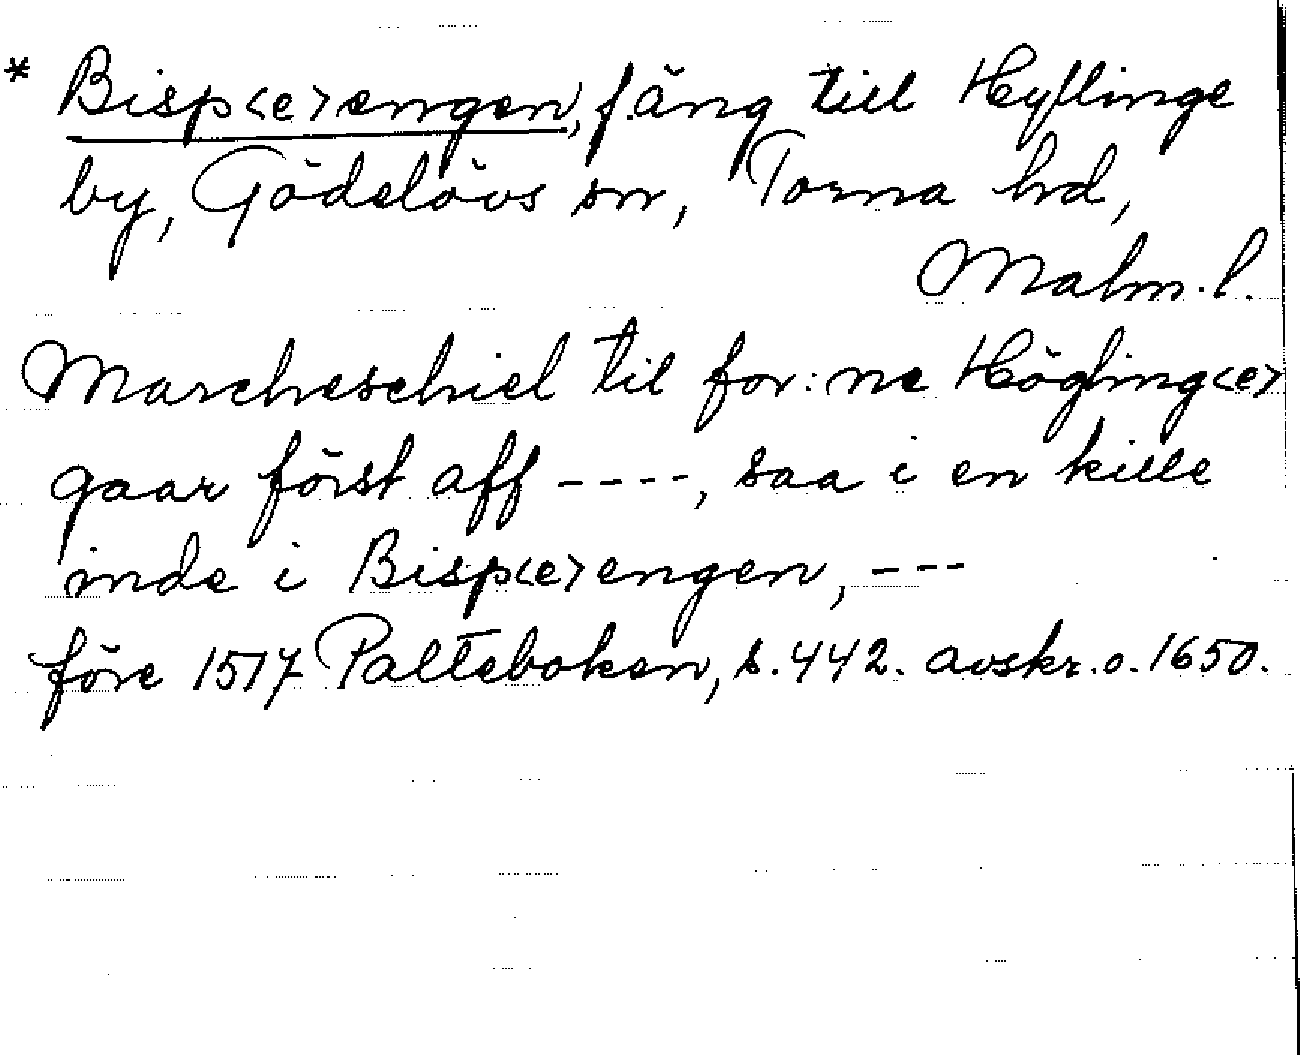 * Bisp<e>engen, f. äng till Heyllinge
by, Gödelövs sn, Torna hd,
Malm. l.
Marcheschiel til for: ne Högling<e>
gaar först aff ----, saa i en kille
inde i Bisp<e>engen, ---
före 1517 Palteboken, s. 442. avskr. o. 1650.